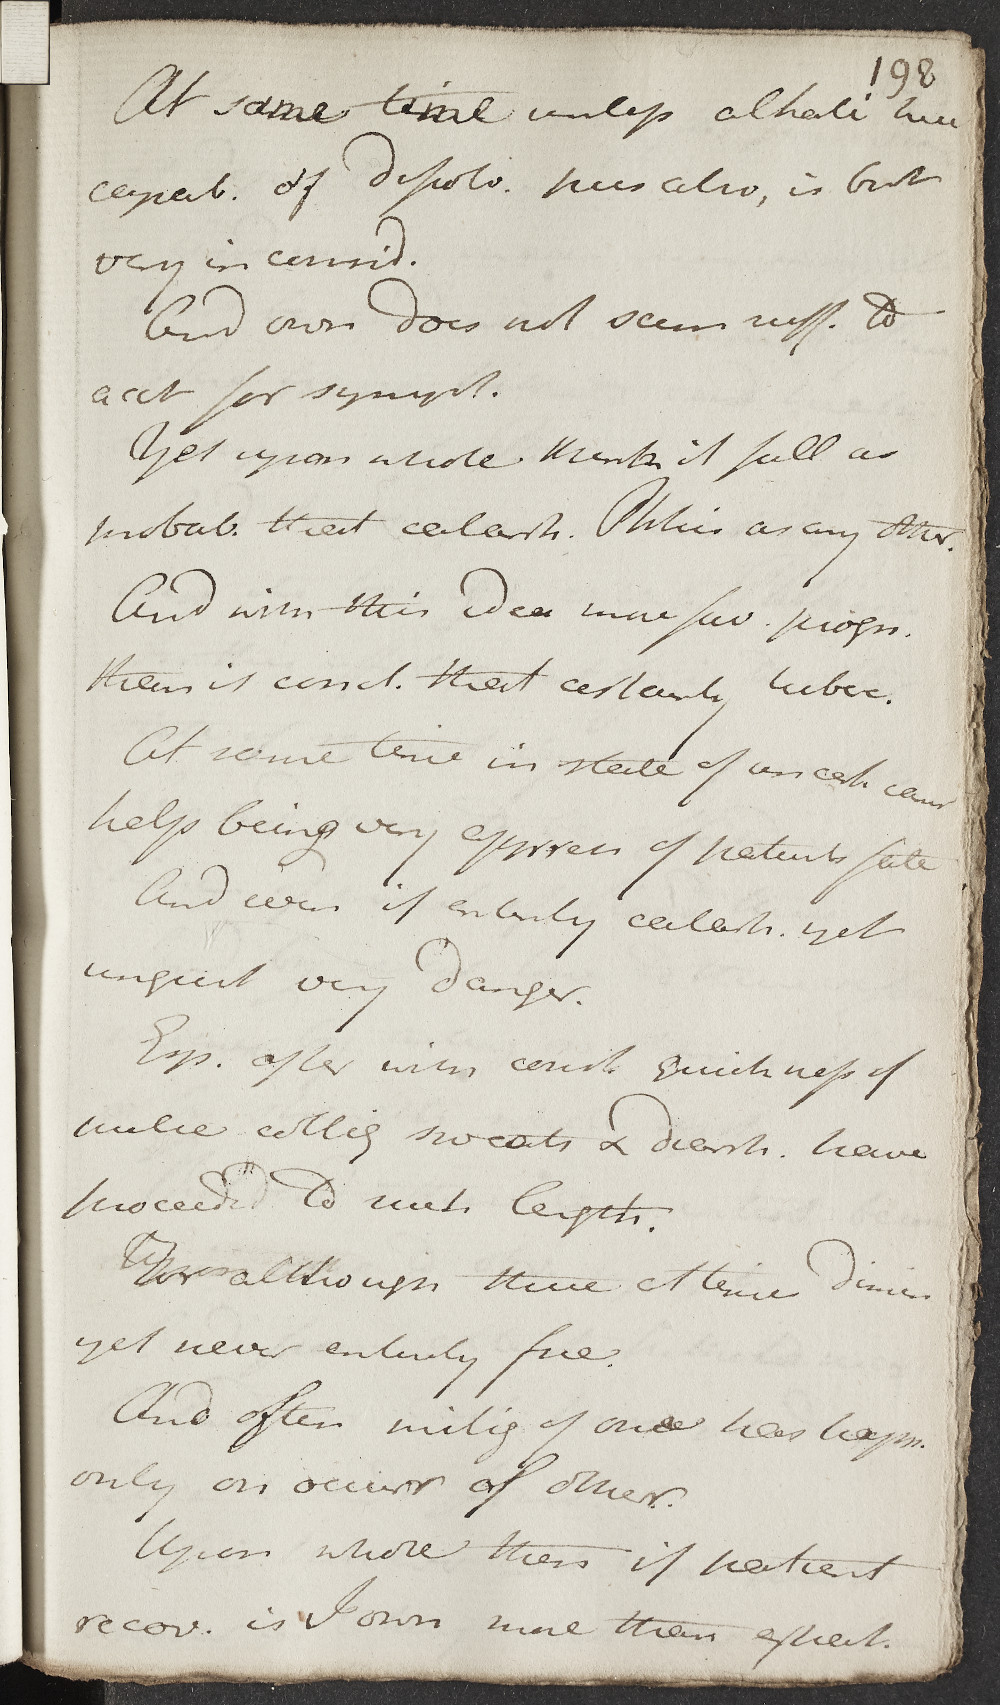 198
At same time unless alkali here
capab. of dissolv. pus also, is but
very in consid.
And own does not seem suff. to
acct for sympt.
Yet upon whole think it full as
probab. that catarrh. Phthis as any other.
And with this idea more fav. progn.
than is concl. that certainly tuberc.
At same time in state of uncert. cant
help being very appreh of patients fate
And even if entirely catarrh. yet
unquest very danger.
Esp. after with consid. quickness of
pulse collig sweats & diarrh. have
proceeded to such length.
For although these at time dimin
yet never entirely free.
And often mitig of one has happn.
only on occurr of other.
Upon whole then if patient
recov. is I own more than expect.